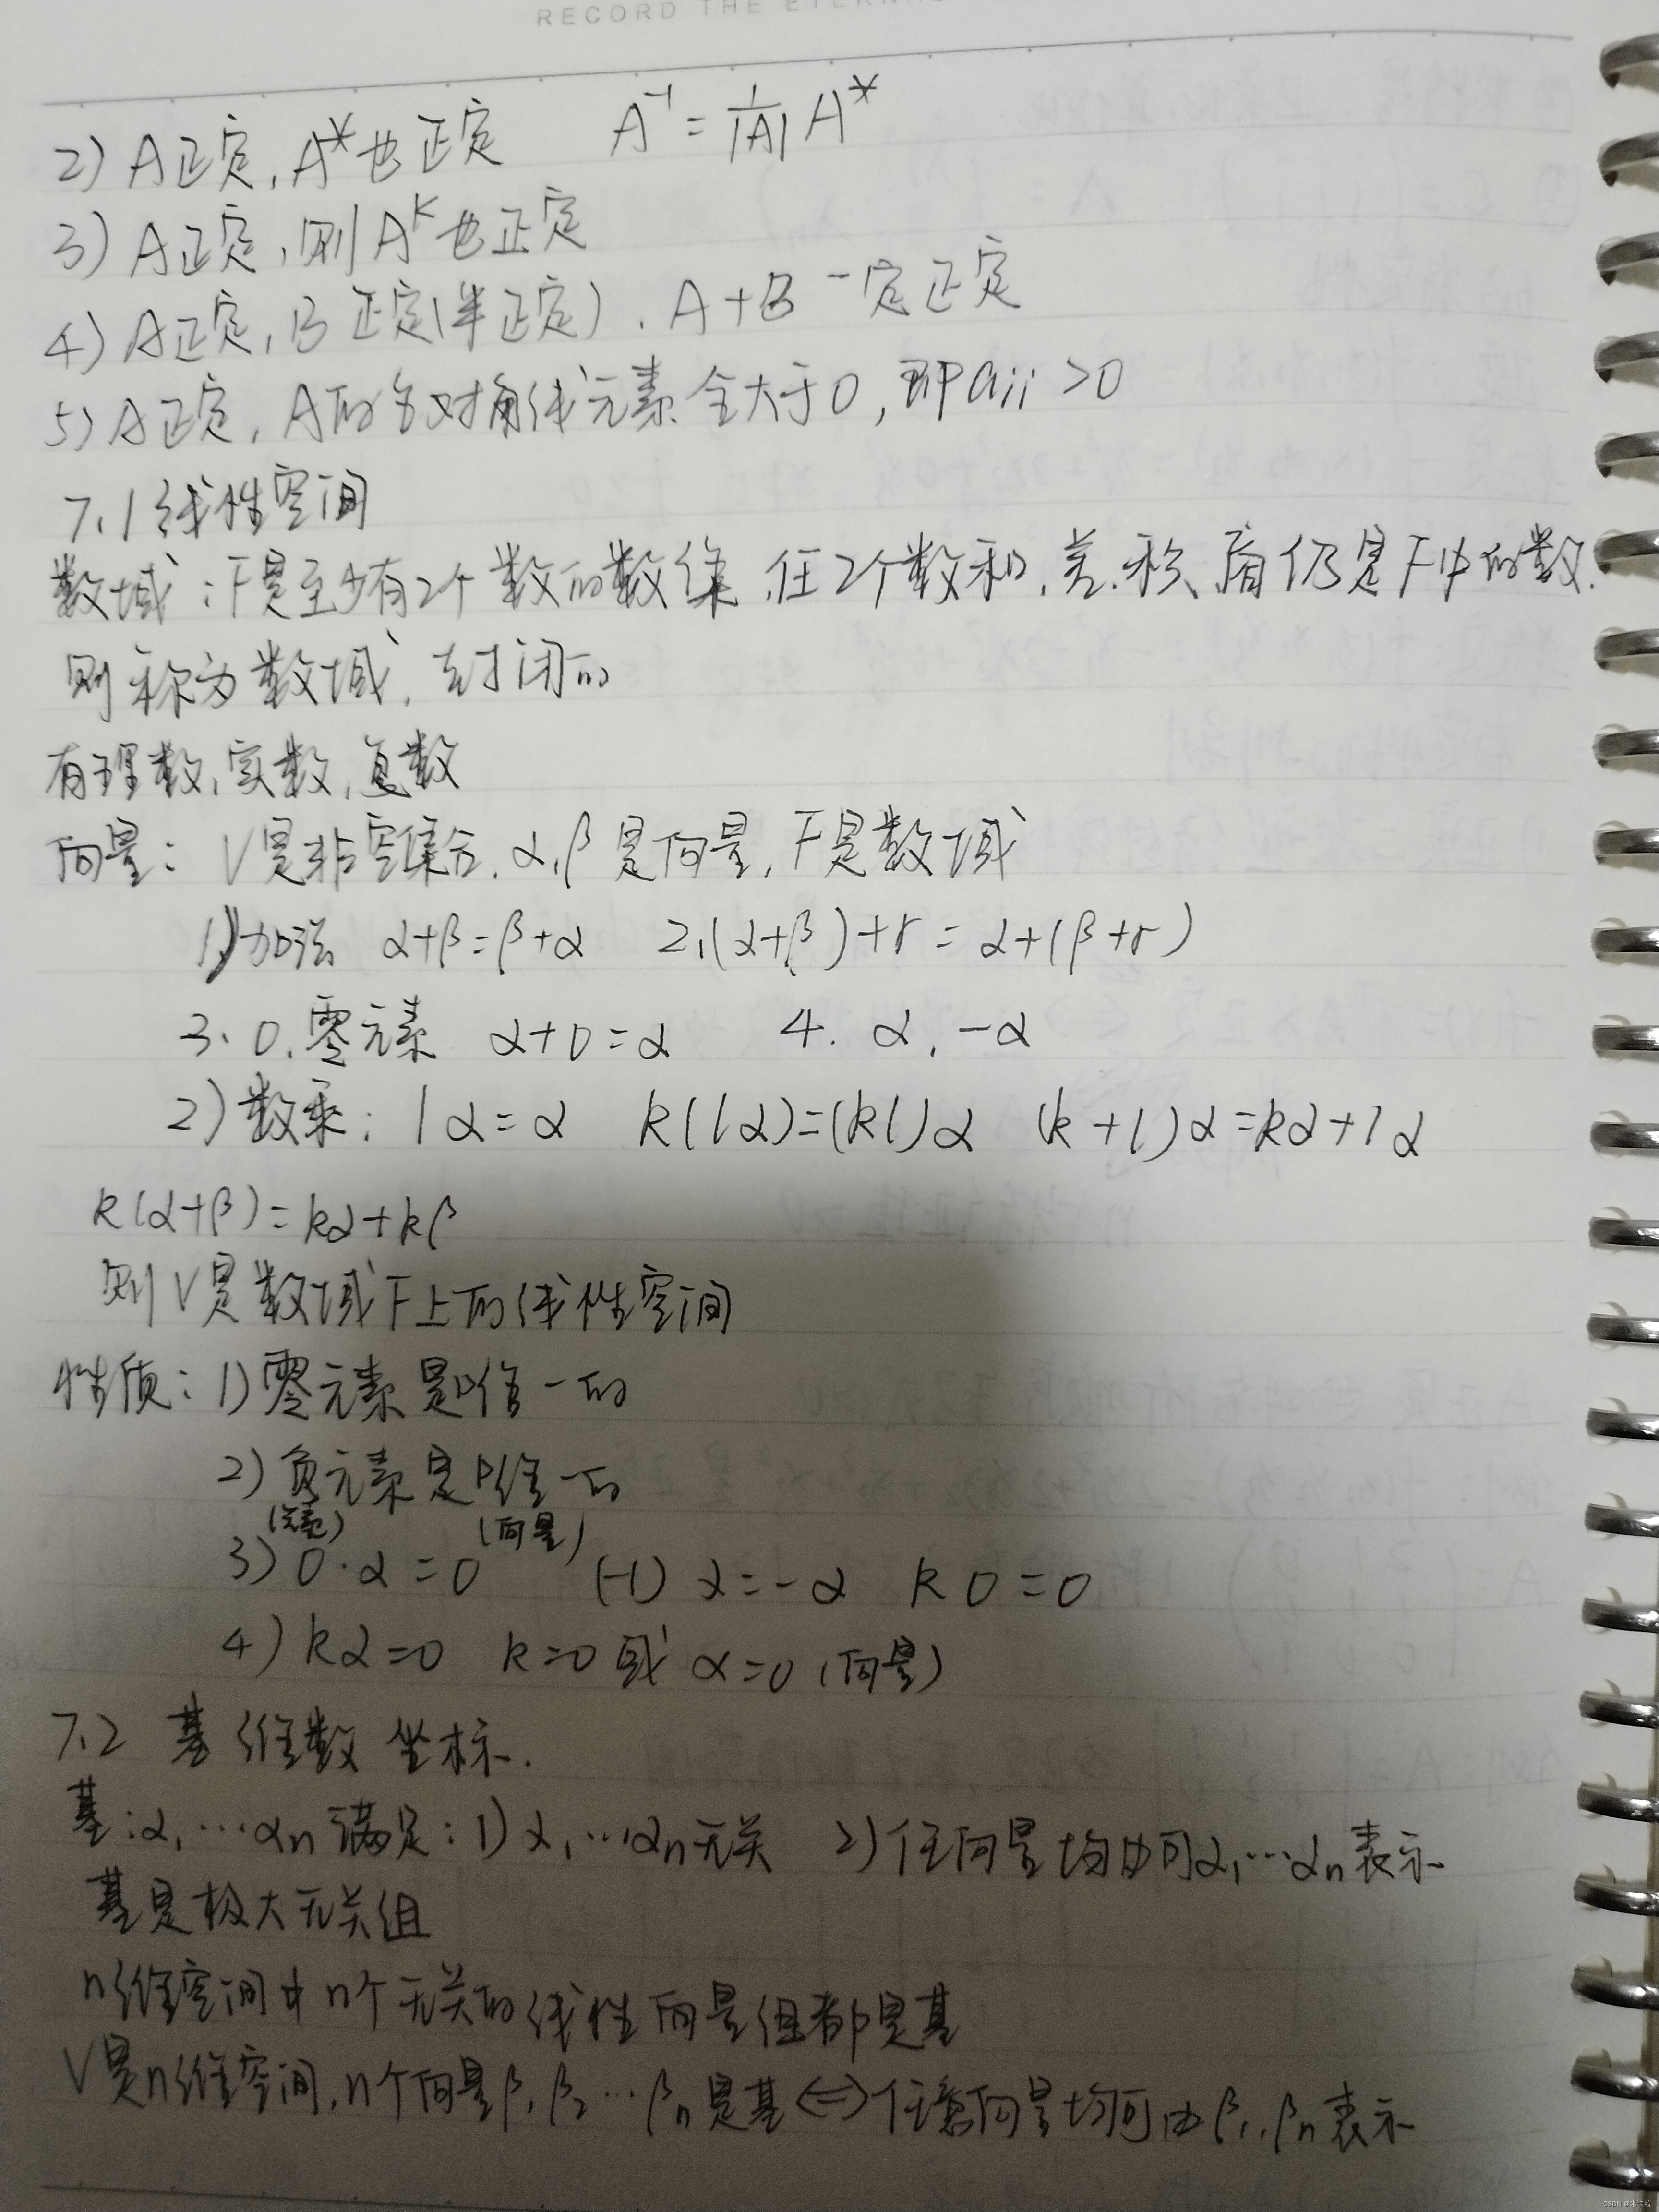 RECORD THE ETERNA
2) A正定, A*也正定 A⁻¹ = 1/|A| A*
3) A正定, 则Aᵏ也正定
4) A正定, B正定(半正定). A+B一定正定
5) A正定, A的各对角线元素全大于0, 即aii >0
7.1 线性空间
数域: F是至少有2个数的数集, 任2个数和, 差, 积, 商仍是F中的数.
则称为数域, 封闭的
有理数, 实数, 复数
向量: V是非空集合, α, β是向量, F是数域
1) 加法 α+β=β+α 2. (α+β)+r = α+(β+r)
3. 0. 零元素 α+0=α 4. α, -α
2) 数乘: 1α=α k(lα)=(kl)α (k+l)α=kα+lα
k(α+β)=kα+kβ
则V是数域F上的线性空间
性质: 1) 零元素是唯一的
2) 负元素是唯一的
(向量)
3) 0·α=0 (-1)α=-α k0=0
4) kα=0 k=0或α=0 (向量)
7.2 基 维数 坐标.
基: α₁…αn满足: 1) α₁…αn无关 2) 任向量均由可α₁…αn表示
基是极大无关组
n维空间中n个无关的线性向量组都是基
V是n维空间, n个向量β₁ β₂…βn是基 <=> 任意向量均可由β₁..βn表示